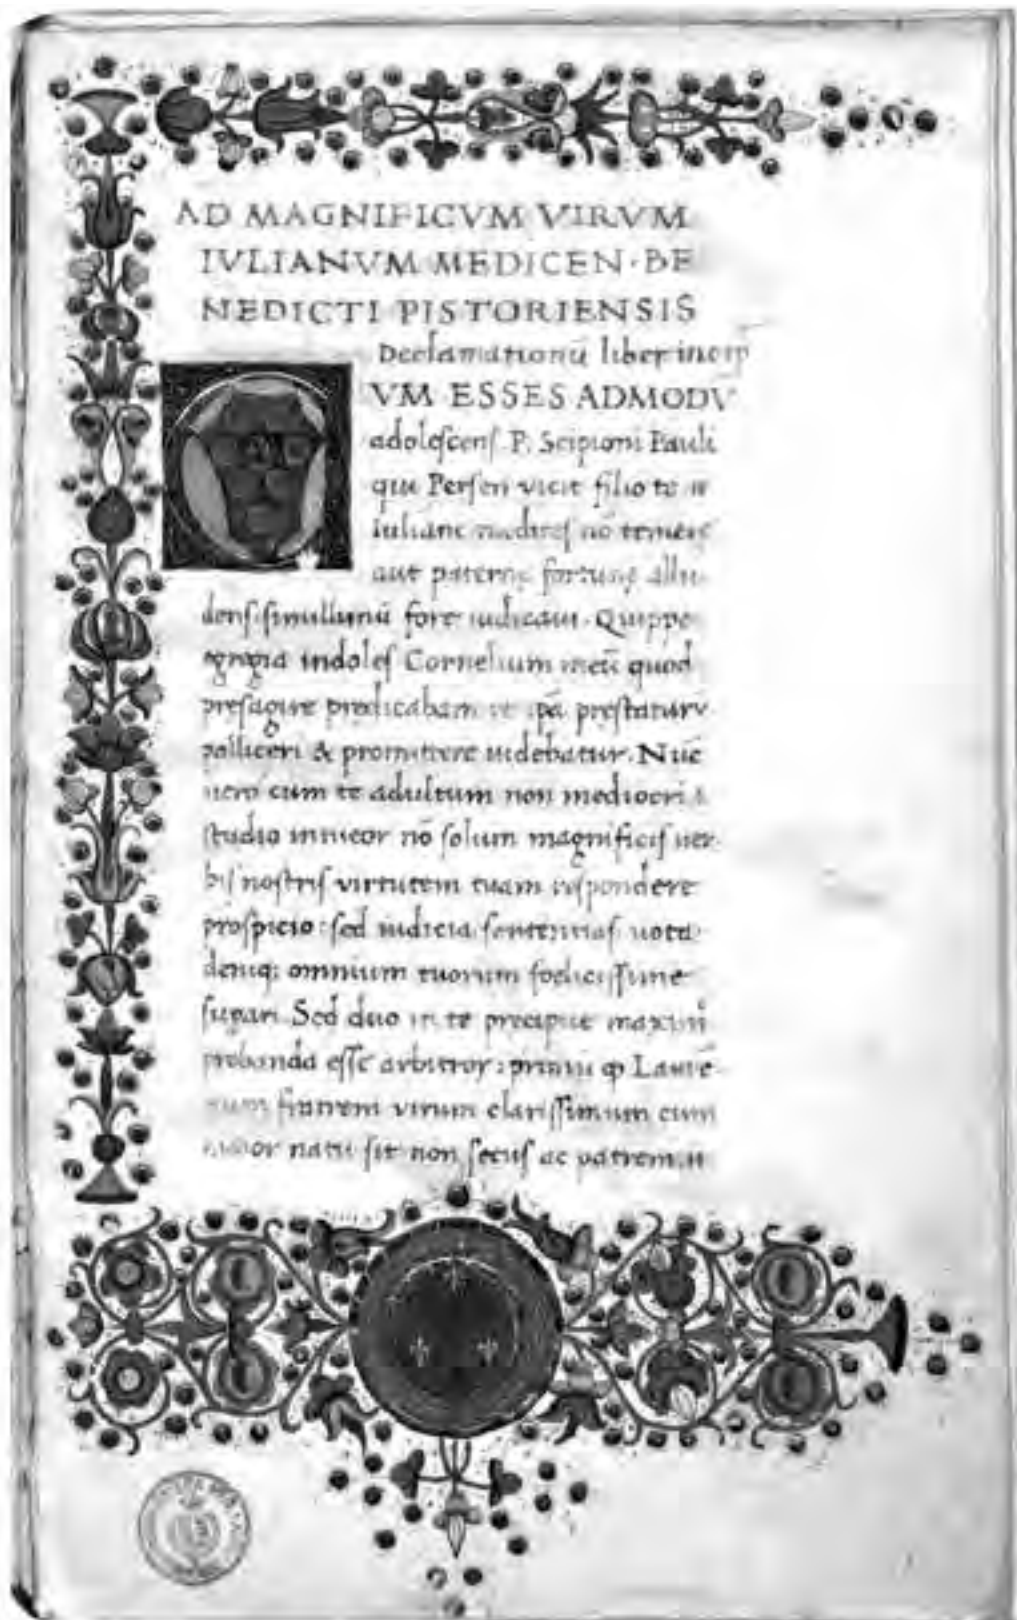 AD MAGNIFICVM VIRVM
IVLIANVM MEDICEN · BE
NEDICTI PISTORIENSIS
Declamationū liber incip
C
VM ESSES ADMODV
adolescens P. Scipioni Pauli
qui Persen vicit filio te
Iuliane medices nō temere
aut paternę fortunę allu
dens simillimū fore iudicavi. Quippe
egregia indoles Cornelium metū quod
presagire predicabam re ipā prestaturū
polliceri & promittere uidebatur. Nūc
uero cum te adultum non mediocri
studio intueor nō solum magnificis uer
bis nostris virtutem tuam respondere
prospicio: sed iudicia sententias uota
deniq; omnium tuorum foelicissime
Sed duo in te precipue
probanda esse arbitror: primū ꝙ Laurē
tium fratrem virum clarissimum cum
minor natu sit non secus ac patrem